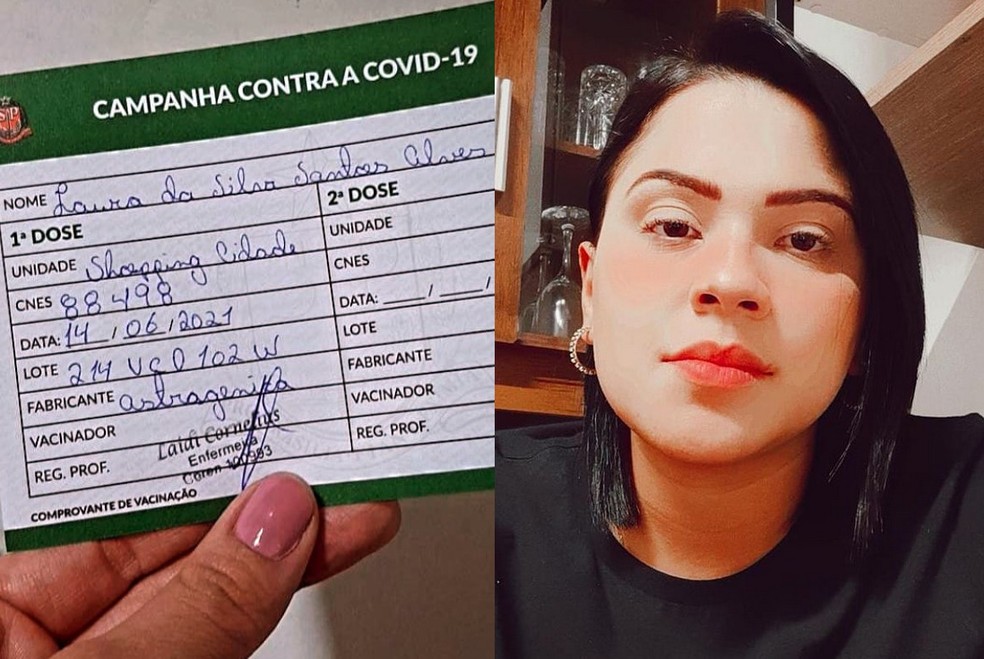 SP
CAMPANHA CONTRA A COVID-19
NOME Laura da Silva Santos Alves
1ª DOSE
UNIDADE Shopping Cidade
CNES 88498
DATA: 14/06/2021
LOTE 214 VCD 102 W
FABRICANTE
VACINADOR
Laidi Cornelius
Enfermeira
REG. PROF. Coren
COMPROVANTE DE VACINAÇÃO
2ª DOSE
UNIDADE
CNES
DATA: ___/___/
LOTE
FABRICANTE
VACINADOR
REG. PROF.